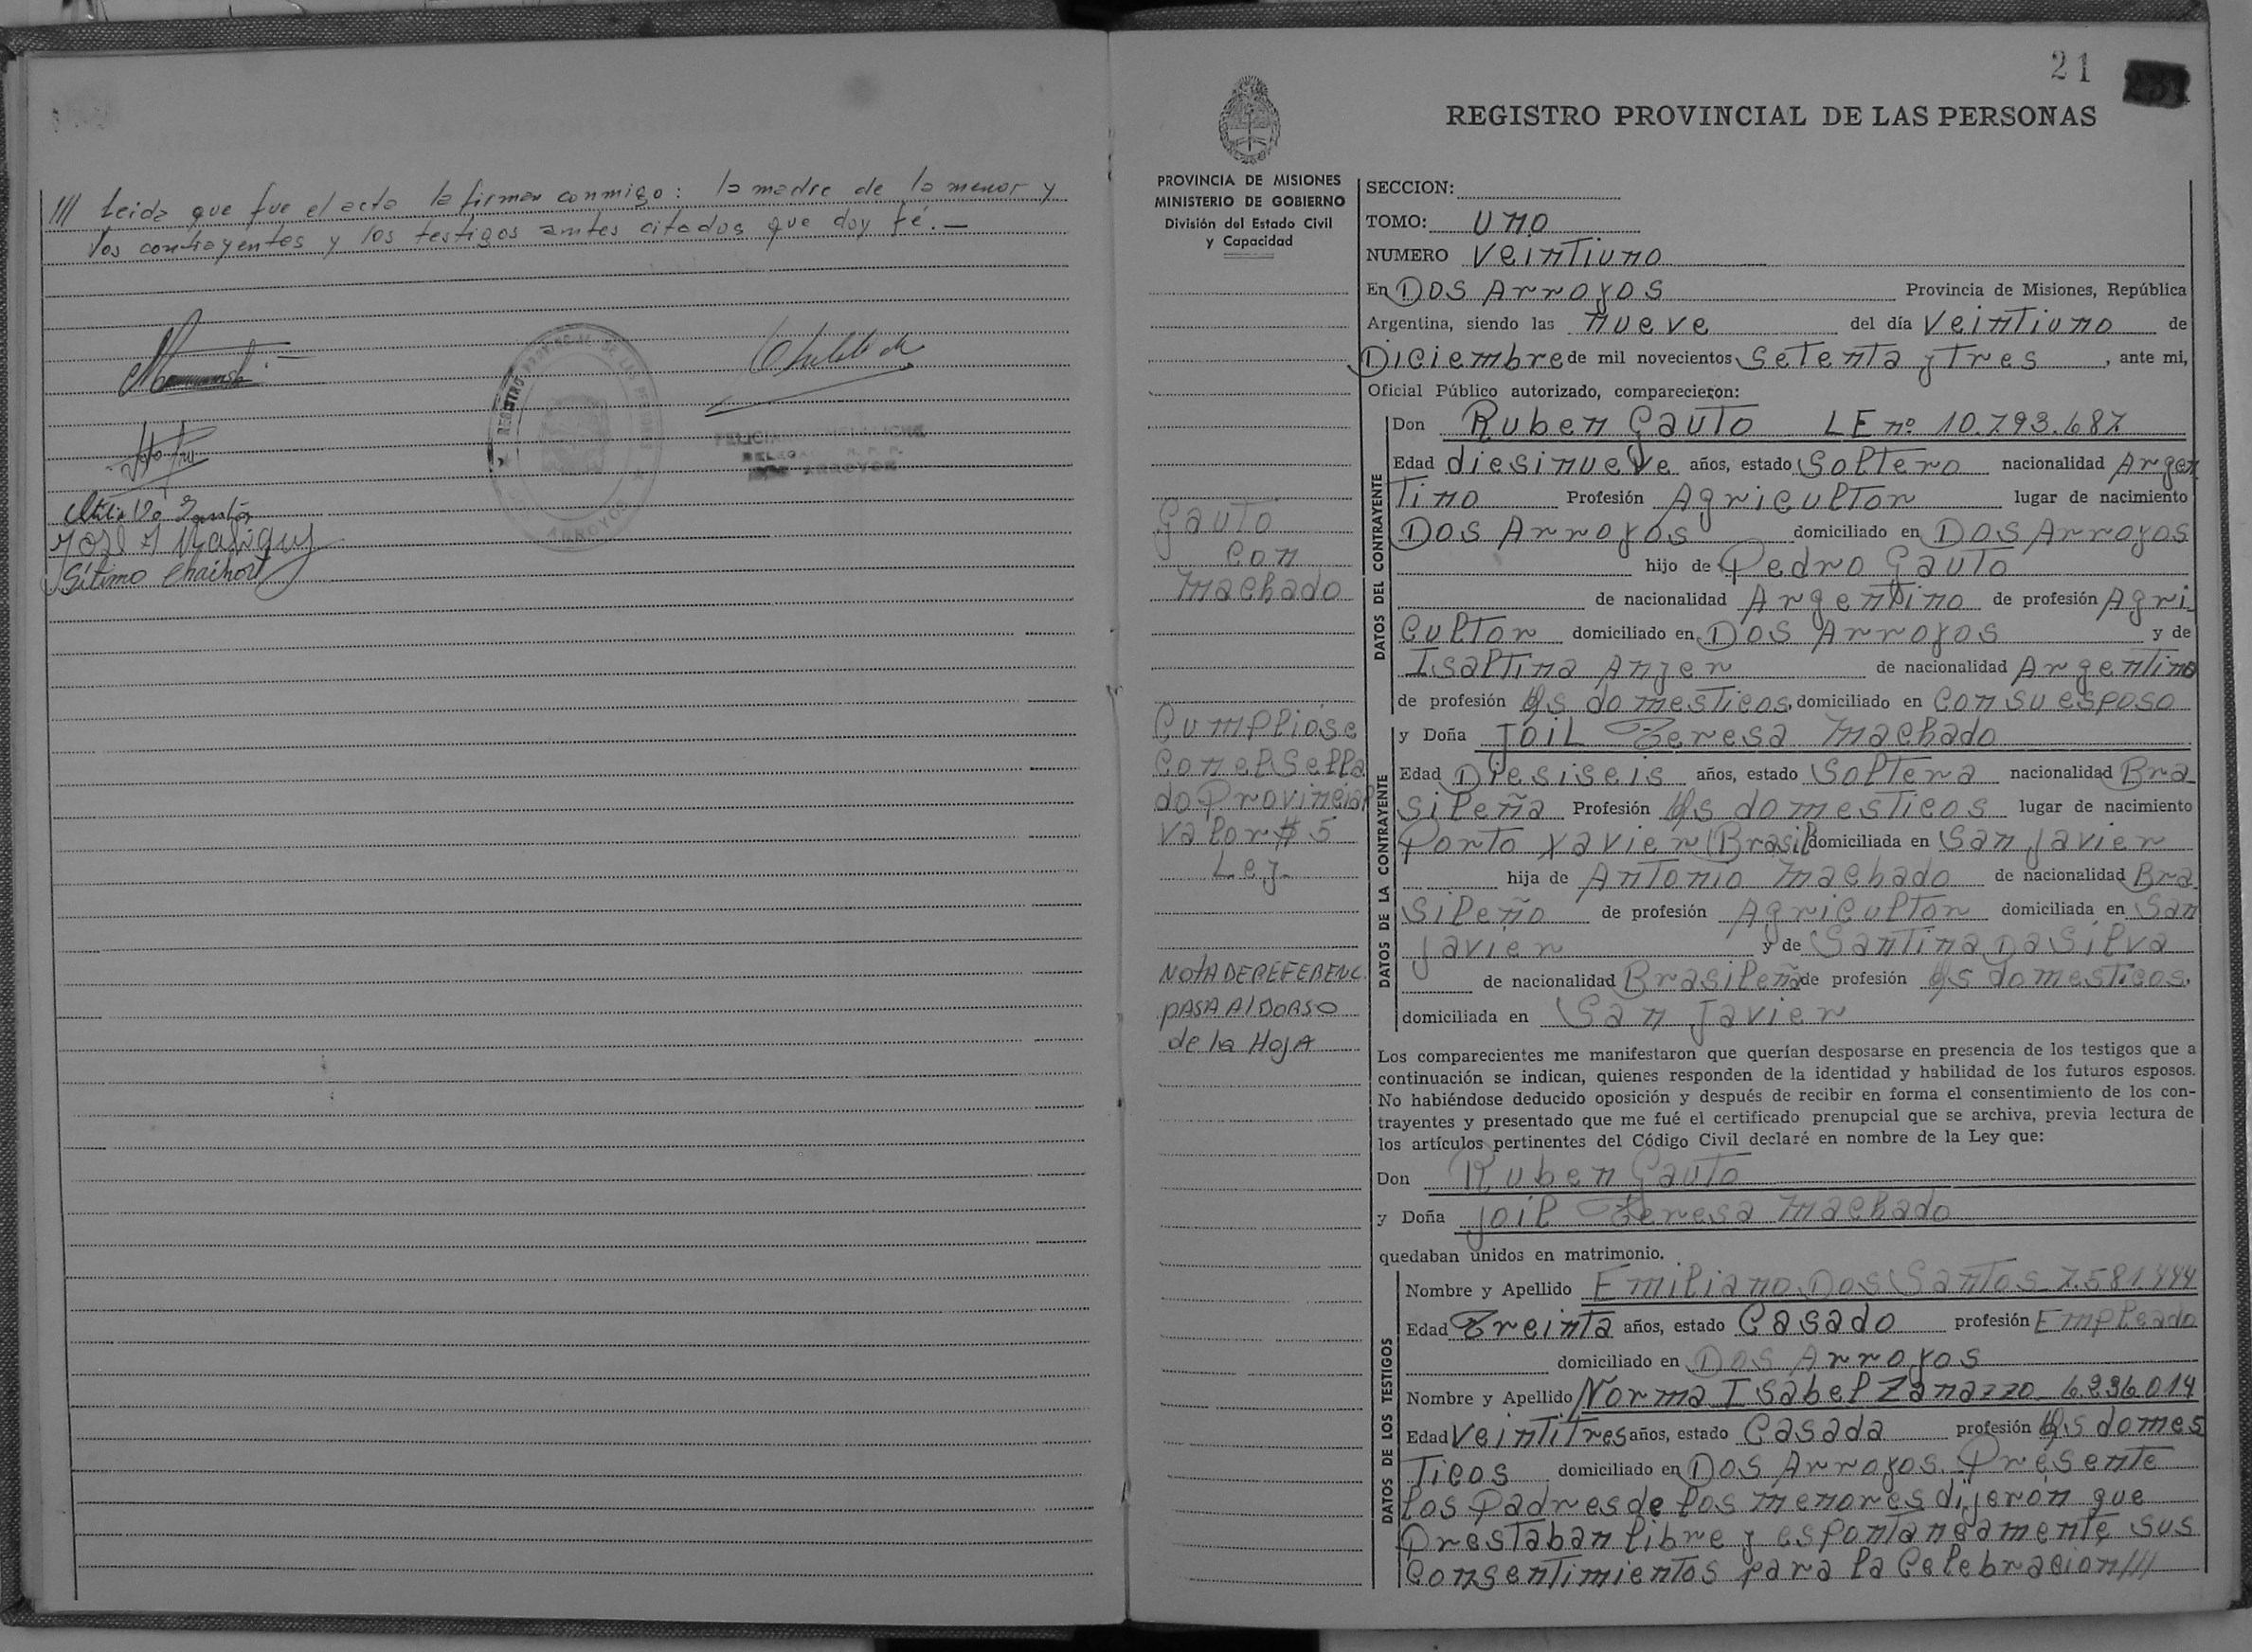 /// leida que fue el acta la firman conmigo: la madre de la menor y
los contrayentes y los testigos antes citados que doy fé.—
REGISTRO PROVINCIAL DE LAS PERSONAS
ARROYOS
DOS ARROYOS
21
REGISTRO PROVINCIAL DE LAS PERSONAS
PROVINCIA DE MISIONES
MINISTERIO DE GOBIERNO
División del Estado Civil
y Capacidad
Gauto
con
Machado
Cumpliose
Con el Sella
do Provincial
Valor $ 5
Ley-
NOTA DE REFERENC.
PASA Al DORSO
de la HOJA
SECCION:
TOMO: uno
NUMERO Veintiuno
En Dos Arroyos Provincia de Misiones, República
Argentina, siendo las nueve del día Veintiuno de
Diciembre de mil novecientos Setenta y Tres, ante mi,
Oficial Público autorizado, comparecieron:
DATOS DEL CONTRAYENTE
Don Ruben Gauto LE nº 10.793.687
Edad diesinueve años, estado Soltero nacionalidad Argen
Tino Profesión Agricultor lugar de nacimiento
Dos Arroyos domiciliado en Dos Arroyos
hijo de Pedro Gauto
de nacionalidad Argentino de profesión Agri
Cultor domiciliado en Dos Arroyos y de
Isaltina Anjer de nacionalidad Argentino
de profesión Qs domesticos, domiciliado en Con su esposo
DATOS DE LA CONTRAYENTE
y Doña Joil Teresa Machado
Edad Diesiseis años, estado Soltera nacionalidad Bra
Sileña Profesión Qs domesticos lugar de nacimiento
Porto Xavier (Brasil domiciliada en San Javier
hija de Antonio Machado de nacionalidad Bra
Sileño de profesión Agricultor domiciliada en San
Javier y de Santina Da Silva
de nacionalidad Brasileña de profesión Qs domesticos.
domiciliada en San Javier
Los comparecientes me manifestaron que querían desposarse en presencia de los testigos que a
continuación se indican, quienes responden de la identidad y habilidad de los futuros esposos.
No habiéndose deducido oposición y después de recibir en forma el consentimiento de los con-
trayentes y presentado que me fué el certificado prenupcial que se archiva, previa lectura de
los artículos pertinentes del Código Civil declaré en nombre de la Ley que:
Don Ruben Gauto
y Doña Joil Teresa Machado
quedaban unidos en matrimonio.
DATOS DE LOS TESTIGOS
Nombre y Apellido Emiliano Dos Santos 7.581.444
Edad Treinta años, estado Casado profesión Empleado
domiciliado en Dos Arroyos
Nombre y Apellido Norma Isabel Zanazzo 6.236.014
Edad Veintitres años, estado Casada profesión Qs domes
Ticos domiciliado en Dos Arroyos. Presente
los Padres de los menores dijeron que
Prestaban libre y espontaneamente sus
Consentimientos para la Celebracion///